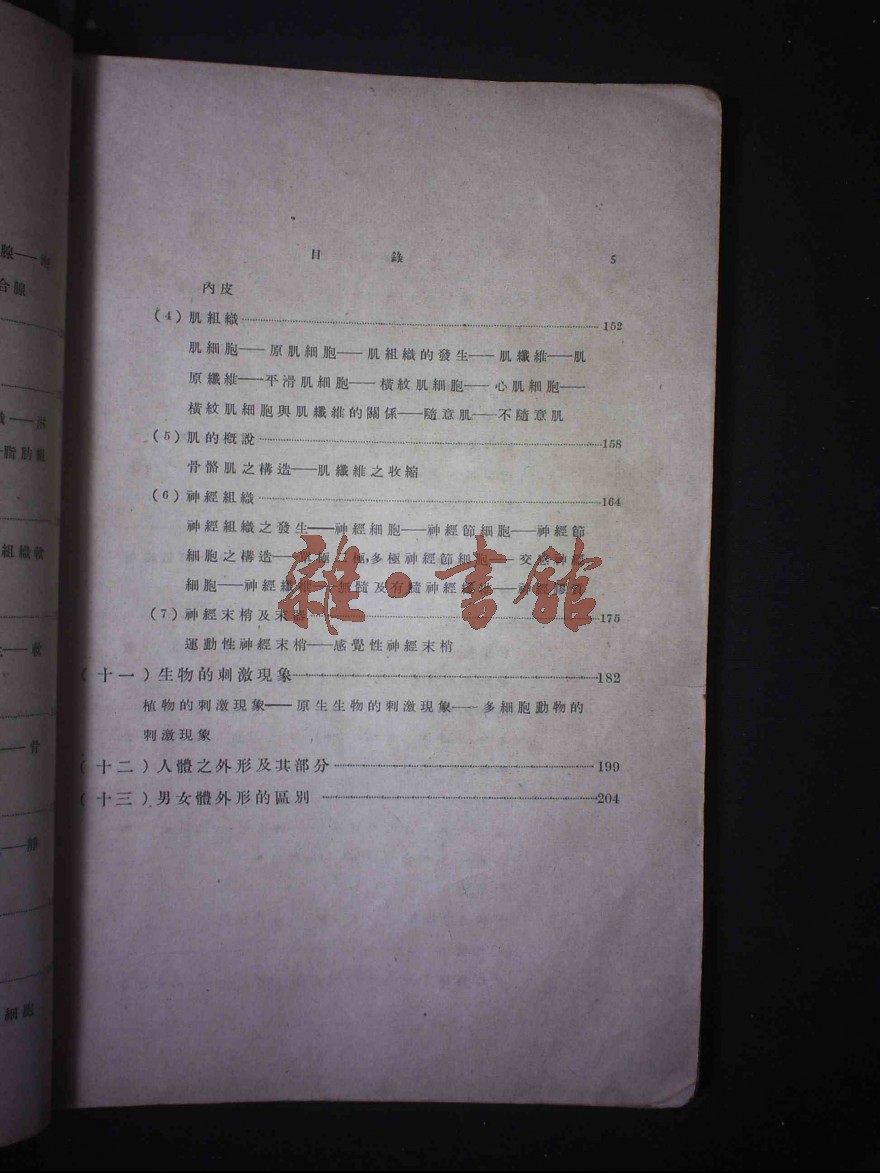 目錄 5
內皮
(4)肌組織 152
肌細胞——原肌細胞——肌組織的發生——肌纖維——肌
原纖維——平滑肌細胞——橫紋肌細胞——心肌細胞——
橫紋肌細胞與肌纖維的關係——隨意肌——不隨意肌
(5)肌的概說 158
骨骼肌之構造——肌纖維之收縮
(6)神經組織 164
神經組織之發生——神經細胞——神經節細胞——神經節
細胞之構造——單極二極,多極神經節細胞——交感神經
細胞——神經纖維——無髓及有髓神經纖維——神經膠質
(7)神經末梢及末器 175
運動性神經末梢——感覺性神經末梢
(十一)生物的刺激現象 182
植物的刺激現象——原生生物的刺激現象——多細胞動物的
刺激現象
(十二)人體之外形及其部分 199
(十三)男女體外形的區別 204
雜·書館
腺——
合腺
脂肪組
組織軟
——軟
——骨
細胞